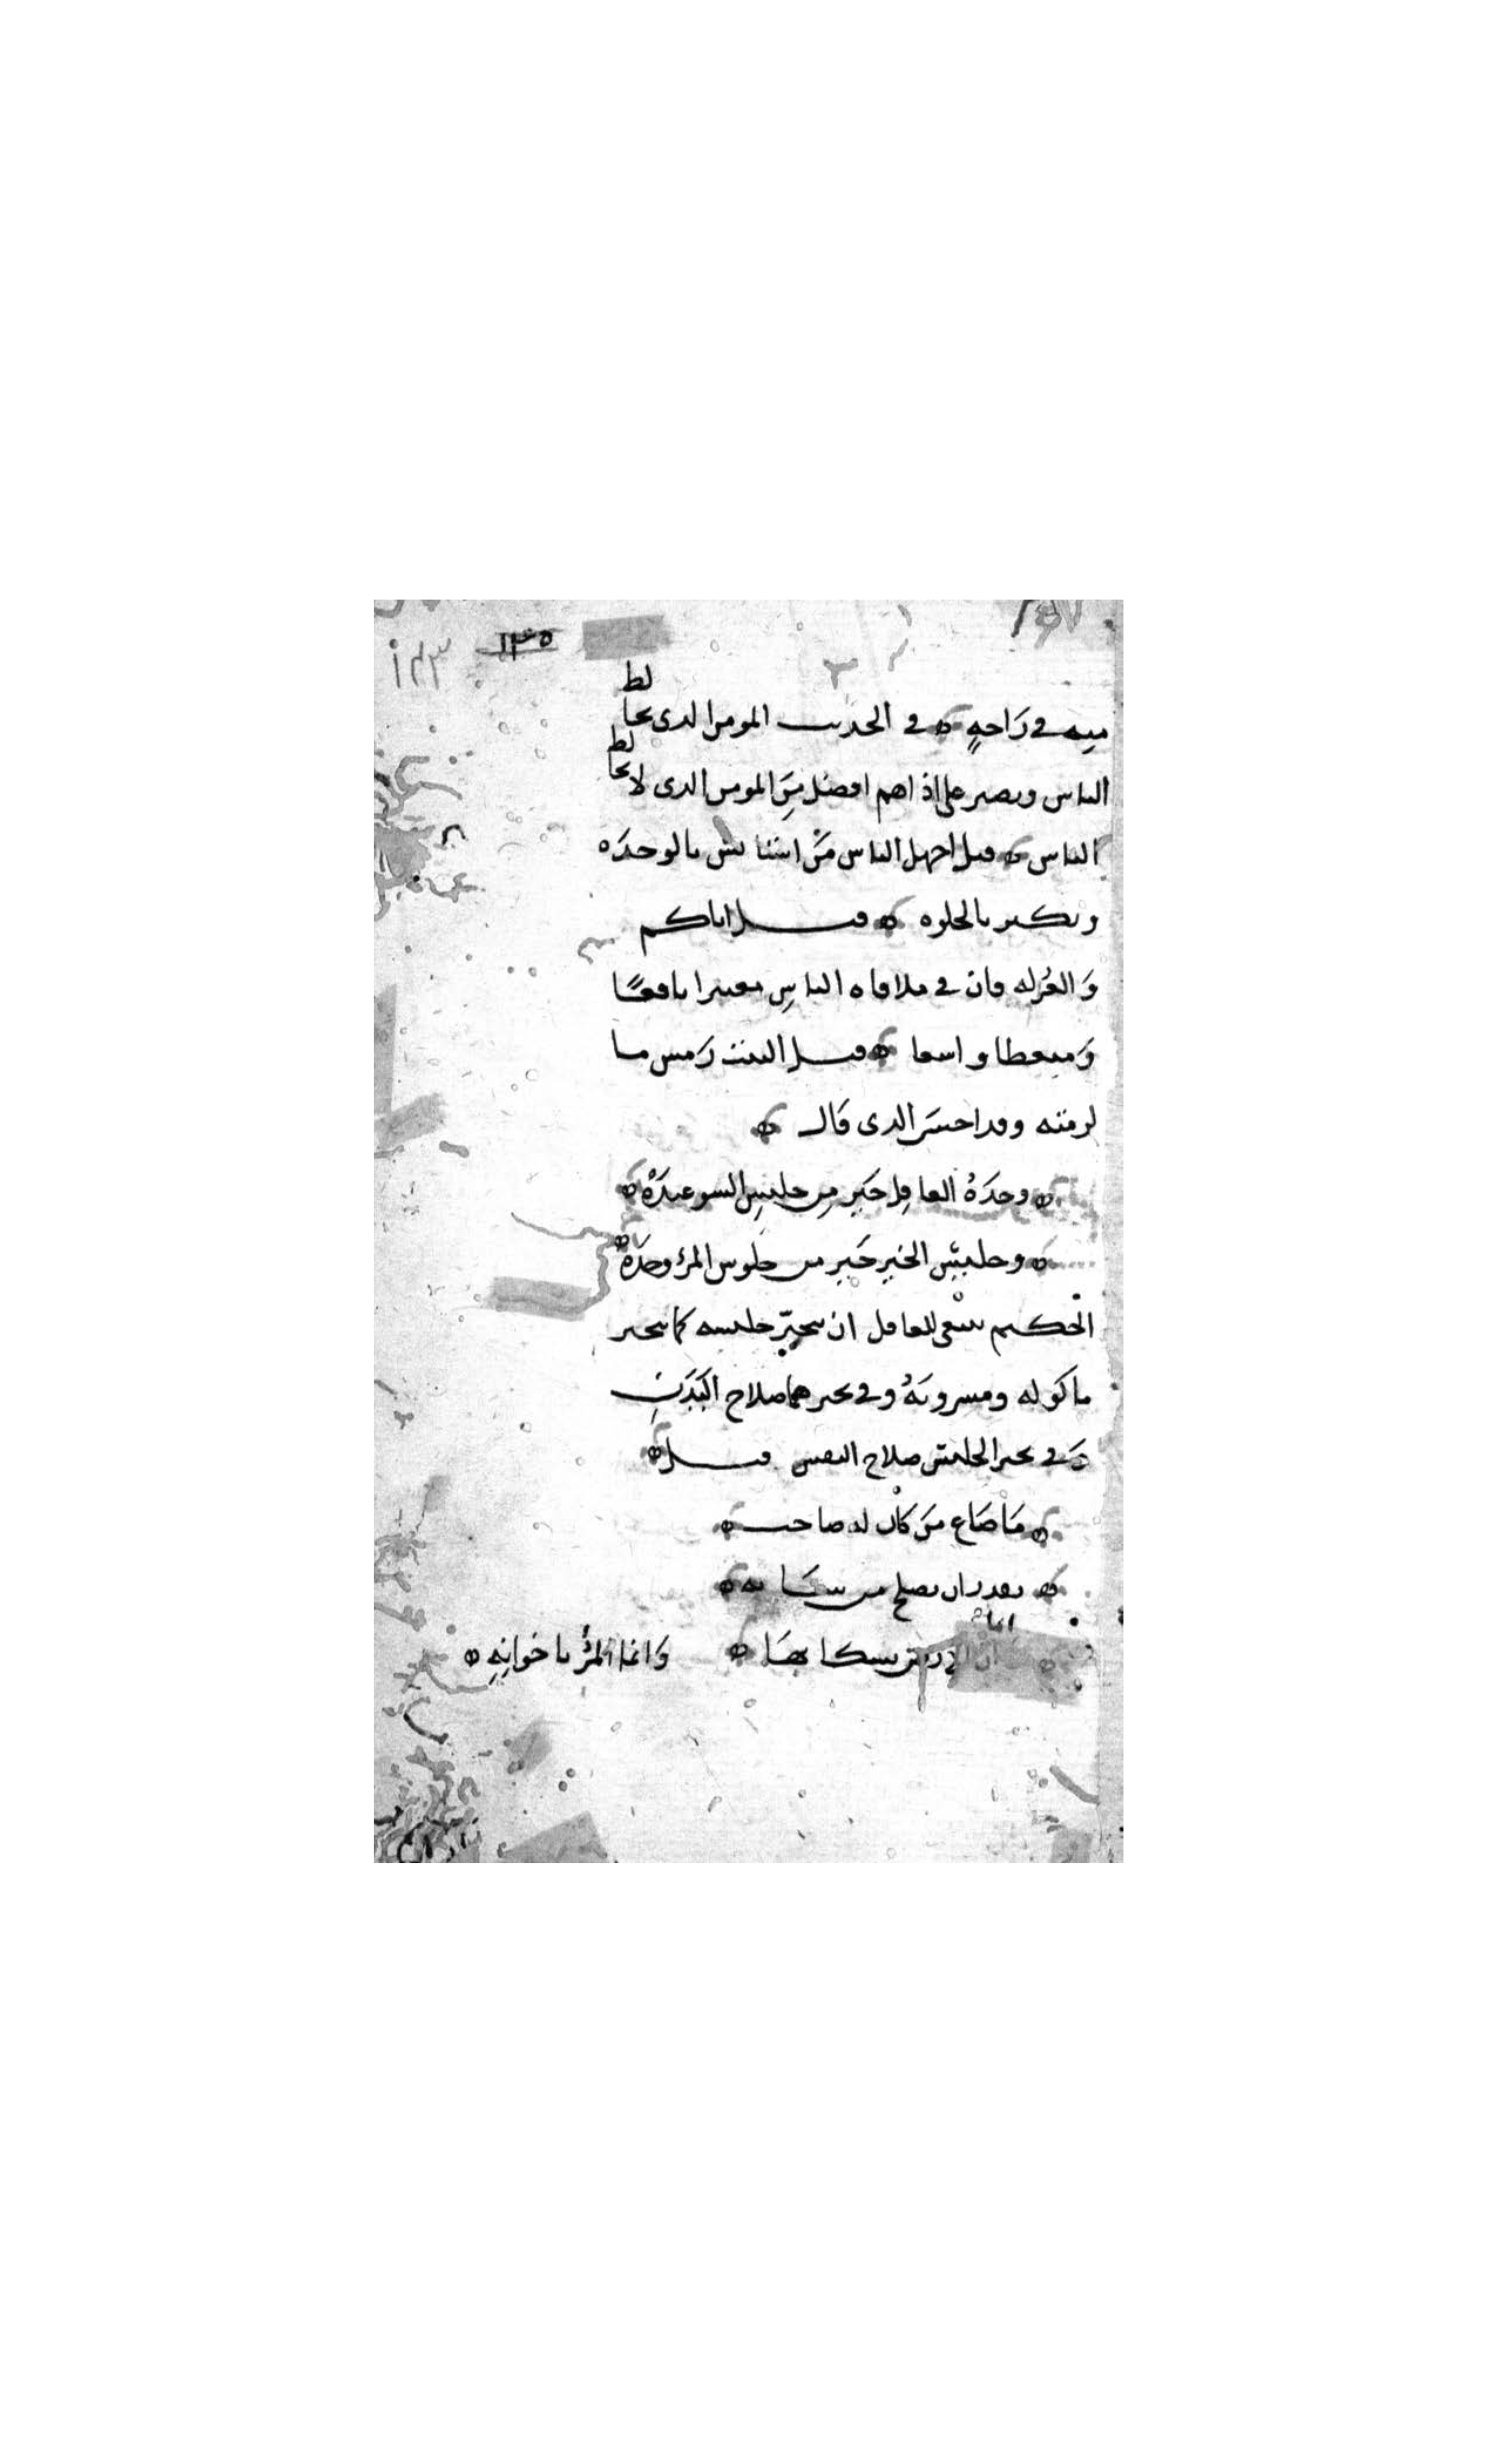 ١٣٥
١٢٣
منه في راحةٍ ه في الحديث المومن الذي يخالط
الناس ويصبر على اذاهم افضل مِنَ المومن الذي لا يخالط
الناس ه قيل اجهل الناس مَنْ استانس بالوحدَه
وتكبر بالخلوه ه قيل اياكم
وَالعُزله فان في ملاقاه الناسِ معتبرا نافعًا
وَمتعظا واسعا ه قيل البيت رَمس ما
لزمته وقد احسَن الذي قال ه
ه وحدَةُ العاقِل خَير مِن جليسِ السو عندَهْ ه
ه وجليسُ الخيرِ خَير من جلوس المرءِ وحدَهْ ه
الحكيم ينبغي للعاقل ان يتخيّر جليسه كما يتخير
ماكوله ومشروبَهُ وفي تخيرهما صلاح البَدَنِ
وَفي تخير الجليس صلاح النفس قيل ه
ه مَا ضَاع مَن كان له صاحب ه
ه يقدر ان يصلح من شَانه ه
ه انما الارض بسكانهَا ه وَانما المرْءُ باخوانِهِ ه